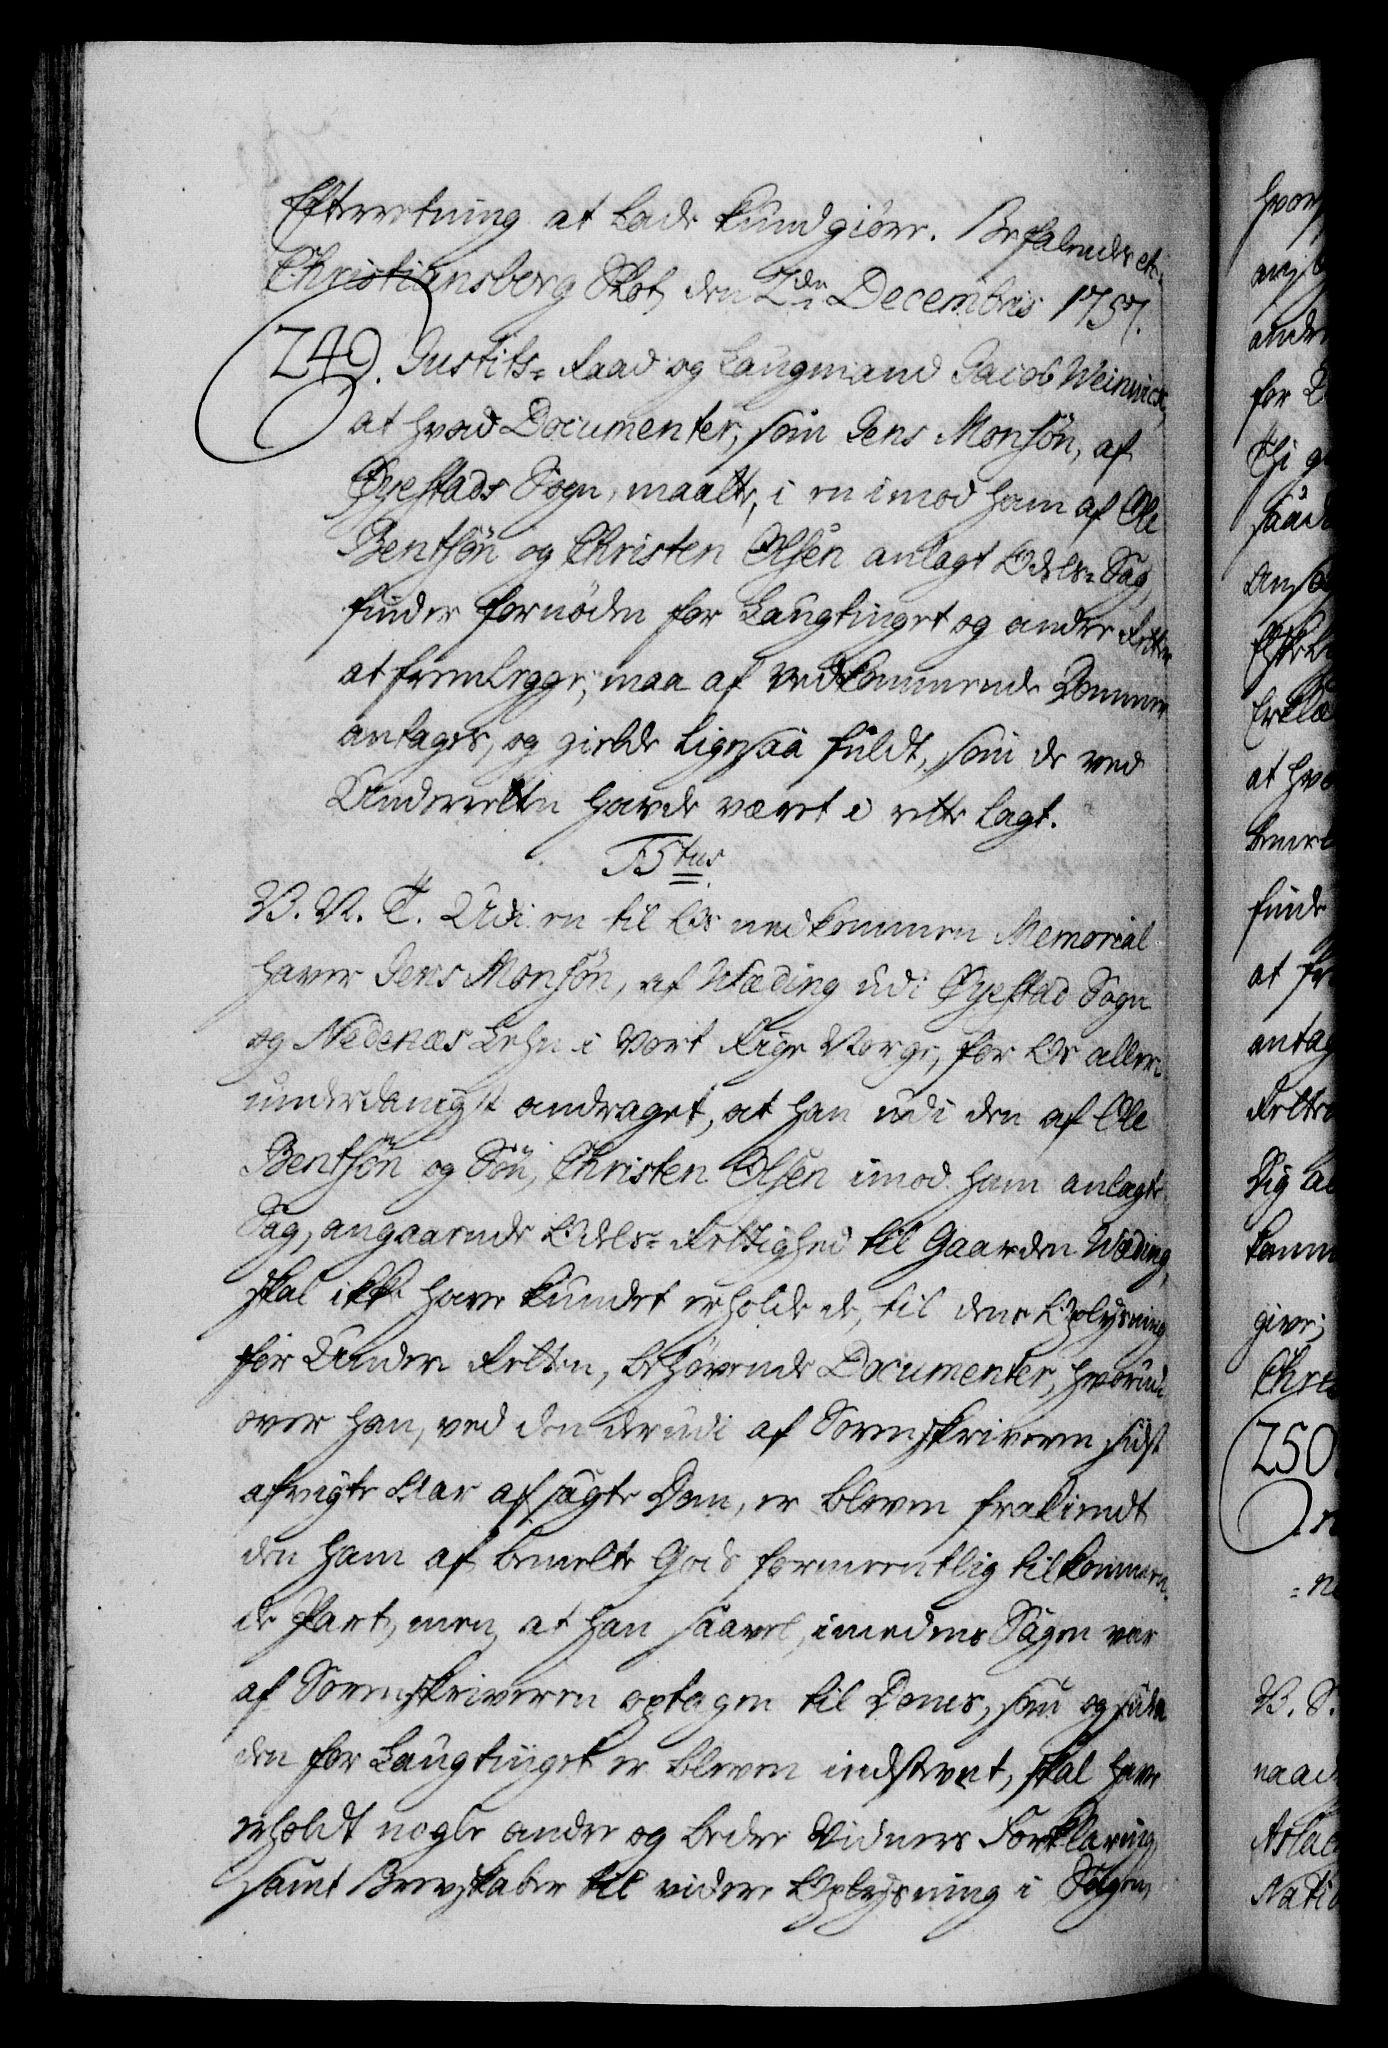 Efterretning at lade kundgiöre. Befalende etc:
Christiansberg Slot, den 2den Decembris 1757.
249. Justits-Raad og Laugmand Jacob Weinwick,
at hvad Documenter, som Jens Monsön, af
Öyestads Sogn, maatte, i en imod ham af Ole
Bentsön og Christen Olsen anlagt Odels-Sag,
finde fornöden for Laugtinget og andre Retter
at fremlegge, maa af vedkommende Dommer
antages, og gielde ligesaa fuldt, som de ved
Underretten havde været i rette lagt.
F5tus
V. N. T. Udi en til Os nedkommen Memorial
haver Jens Monsön, af Wæding udi Öyestad Sogn
og Nedenæs Lehn i Vort Rige Norge, for Os aller-
underdanigst andraget, at han udi den af Ole
Bentsön og Sön, Christen Olsen imod ham anlagte
Sag, angaaende Odels-Rettighed til Gaarden Wæding,
skal ikke have kundet erholde de, til dens Oplysning
for Under Retten, behövende Documenter, hvorud-
over han, ved den derudi af Sorenskriveren sidst
afvigte Aar afsagte Dom, er bleven frakiendt
den ham af bemelte Gods formeentlig tilkommen-
de Part, men at han saavel, imedens Sagen var
af Sorenskriveren optagen til Doms, som og siden
den for Laugtinget er bleven indstevnt, skal have
erholdt nogle andre og bedre Vidners Forklaring,
samt Brevskaber til videre Oplysning i Sagen,